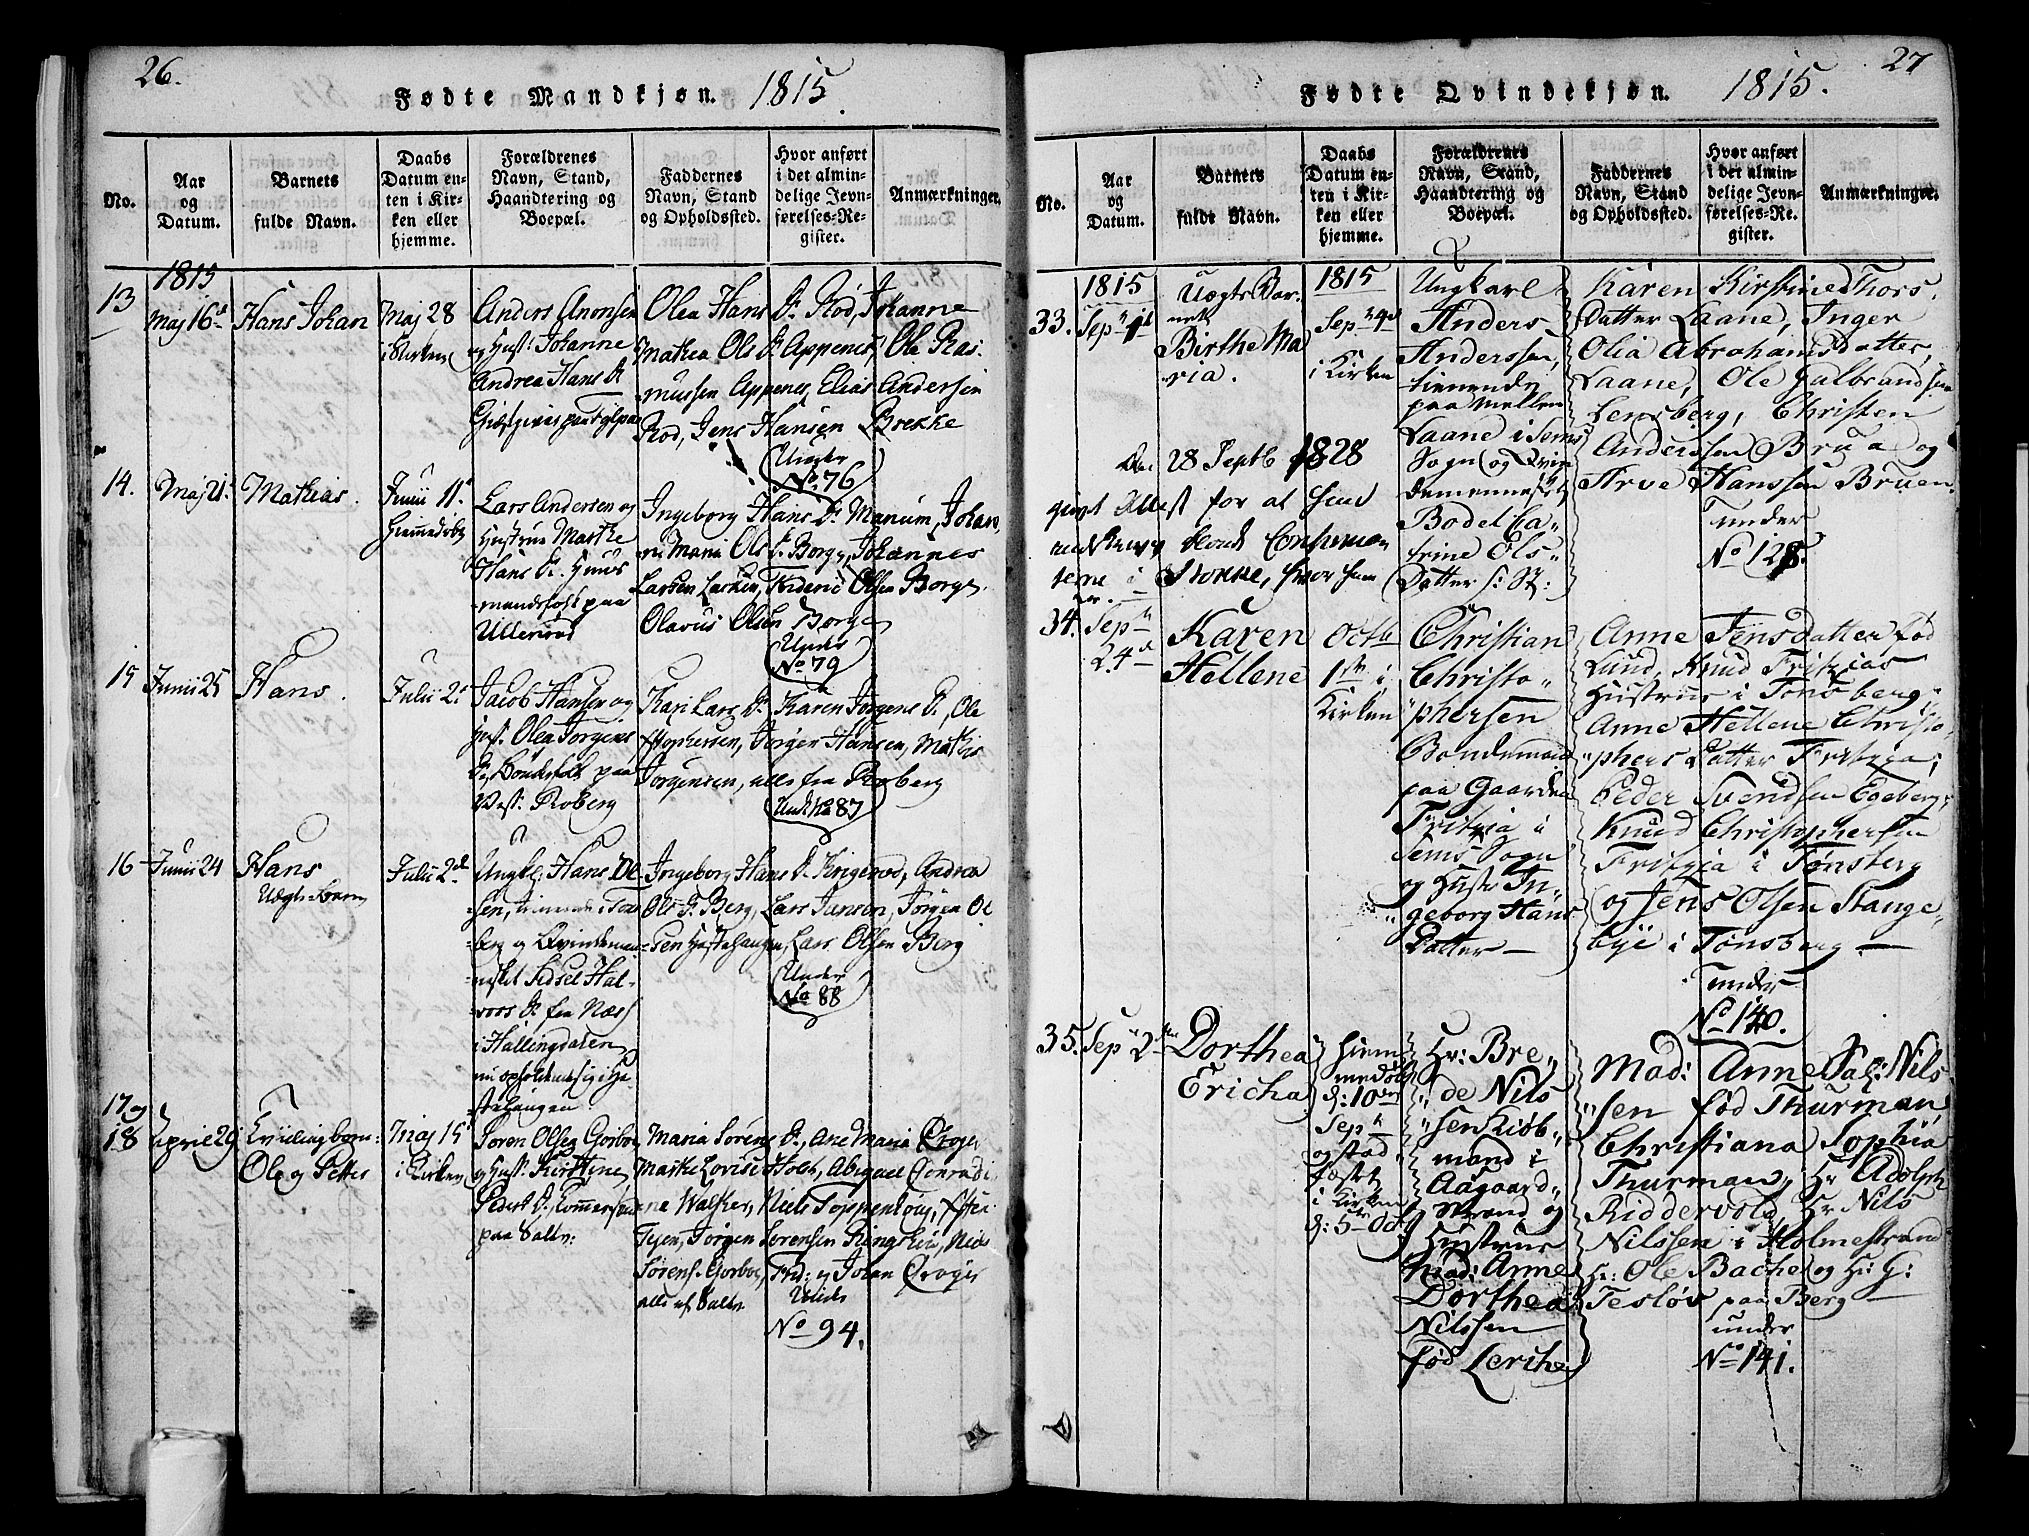 26.
Fødte Mandkjøn. 1815.
No.
Aar
og
Datum.
Barnets
fulde Navn.
Daabs
Datum en-
ten i Kir-
ken eller
hjemme.
Forældrenes
Navn, Stand,
Haandtering og
Boepæl.
Faddernes
Navn, Stand
og Opholdssted.
Hvor anført
i det almin-
delige Jevn-
førelses-Re-
gister.
Anmærkninger.
1815
13
Maj 16d
Hans Johan
Maj 28
i Kirken
Anders
og Hust: Johanne
Andrea Hans D.
Olea Hans D. Rød, Johanne
Mathea Ols D. Appenes, Ole Ras-
mussen Appenes, Elias Andersen
Rød, Jens Hansen Brekke
Under
No 76
14.
Maj 21.
Mathias.
Junii 11.
Lars Andersen og
Hustrue Marthe
Hans D. Huus
mandsfolk paa
Ingeborg Hans D. Manum, Johan
ne Maria Ols D. Borge, Johannes
Larsen Frideric Olsen Borge.
Olavus Olsen Borge
Under
No 79
15
Junii 25
Hans.
Julii 2.
Jacob Hansen og
Hust. Olea Jorgens
D. Bondefolk paa
Vest. Roberg
Kari Lars D. Karen Jorgens D., Ole
Jørgen Hansen, Mathis
Jorgensen, alle fra Roberg
Und. No 87
16
Junii 24
Hans
Uægte Barn
Julii 2d
Ungk: Hans Ol
sen, tienende i Tøns
berg og Qvindeman
nesket Sidsel Hal-
vors D. fra Næss
i Hallingdalen
nu opholdende sig i
Ingeborg Hans D. Krigerød, Andrea
Ols D. Berg, Lars Jansen, Jørgen Ol
sen Lars Olsen Berg
Under
No 88
17 og
18
Aprie 29
Tvillingbørn:
Ole og Petter
Maj 15
i Kirken
Søren Olsen Gorboe
og Hust. Kirstine
Peders D.
paa Valløe:
Maria Sørens D., Ane Maria Kroger
Marthe Lovise Holst, Abigael Conradi
ne Walker, Niels Toppenhoug,
Jørgen Sørensen Ringshus, Niels
Sørens. Gorboe, Frid: og Johan Kroger
alle af Valløe
Under
No 94.
27
Fødte Qvindekjøn. 1815.
No.
Aar
og
Datum.
Barnets
fulde Navn.
Daabs
Datum en-
ten i Kir-
ken eller
hjemme.
Forældrenes
Navn, Stand,
Haandtering og
Boepæl.
Faddernes
Navn, Stand
og Opholdssted.
Hvor anført
i det almin-
delige Jevn-
førelses-Re-
gister.
Anmærkninger.
1815
33.
Sept 1d
Uægte Bar-
net
Birthe Ma
ria.
1815
Sept
i Kirken
Ungkarl
Anders
Anderssen,
tienende
paa mellem
Laane i Sems
Sogn og Qvin
demennesket
Bodel Ca-
trine Ols-
Datter s: St:
Karen Kirstine Thors.
Datter Laane, Inger
Olia Abrahamsdatter,
Laane, Ole Gulbrandsen
Lensberg, Christen
Anderssen Brua og
Arve Hanssen Bruen.
under
No 128.
Den 28 Septb 1828
givet Attest for at hun
Stokke, hvor hun
34.
Sept
24d
Karen
Hellene
Octb
1ste i
Kirken
Christian
Christo-
phersen
Bondemand
paa Gaarden
Fritzia i
Sems Sogn,
og Hustr In-
geborg Hans
Datter
Anne Jensdatter fød
Lund, Knud Fritzias
Hustrue i Tønsberg,
Anne Hellene Christo-
phers Datter Fritzia,
Peder Svendsen Egeberg,
Knud Christophersen
Fritzia i Tønsberg
og Jens Olsen Stange-
bye i Tønsberg
under
No 140.
35.
Sept 2den
Dorthea
Ericha
Hiem-
medøbt
d: 10de
Sept
og stad-
fæstet
i Kirken
d: 5te Oct
Hr: Bre-
de Nils
sen Kiøb-
mand i
Aagaard-
strand og
Hustrue
Mad: Anne
Dorthea
Nilssen
fød Lerche
Mad: Anne Sal: Nils
sen fød Thurman,
Christiana Sophia
Thurman, Hr Adolph
Riddervold, Hr Nils
Nilssen i Holmestrand
Hr: Ole Bache og Hr: G:
Tesløv paa Berg
under
No 141.